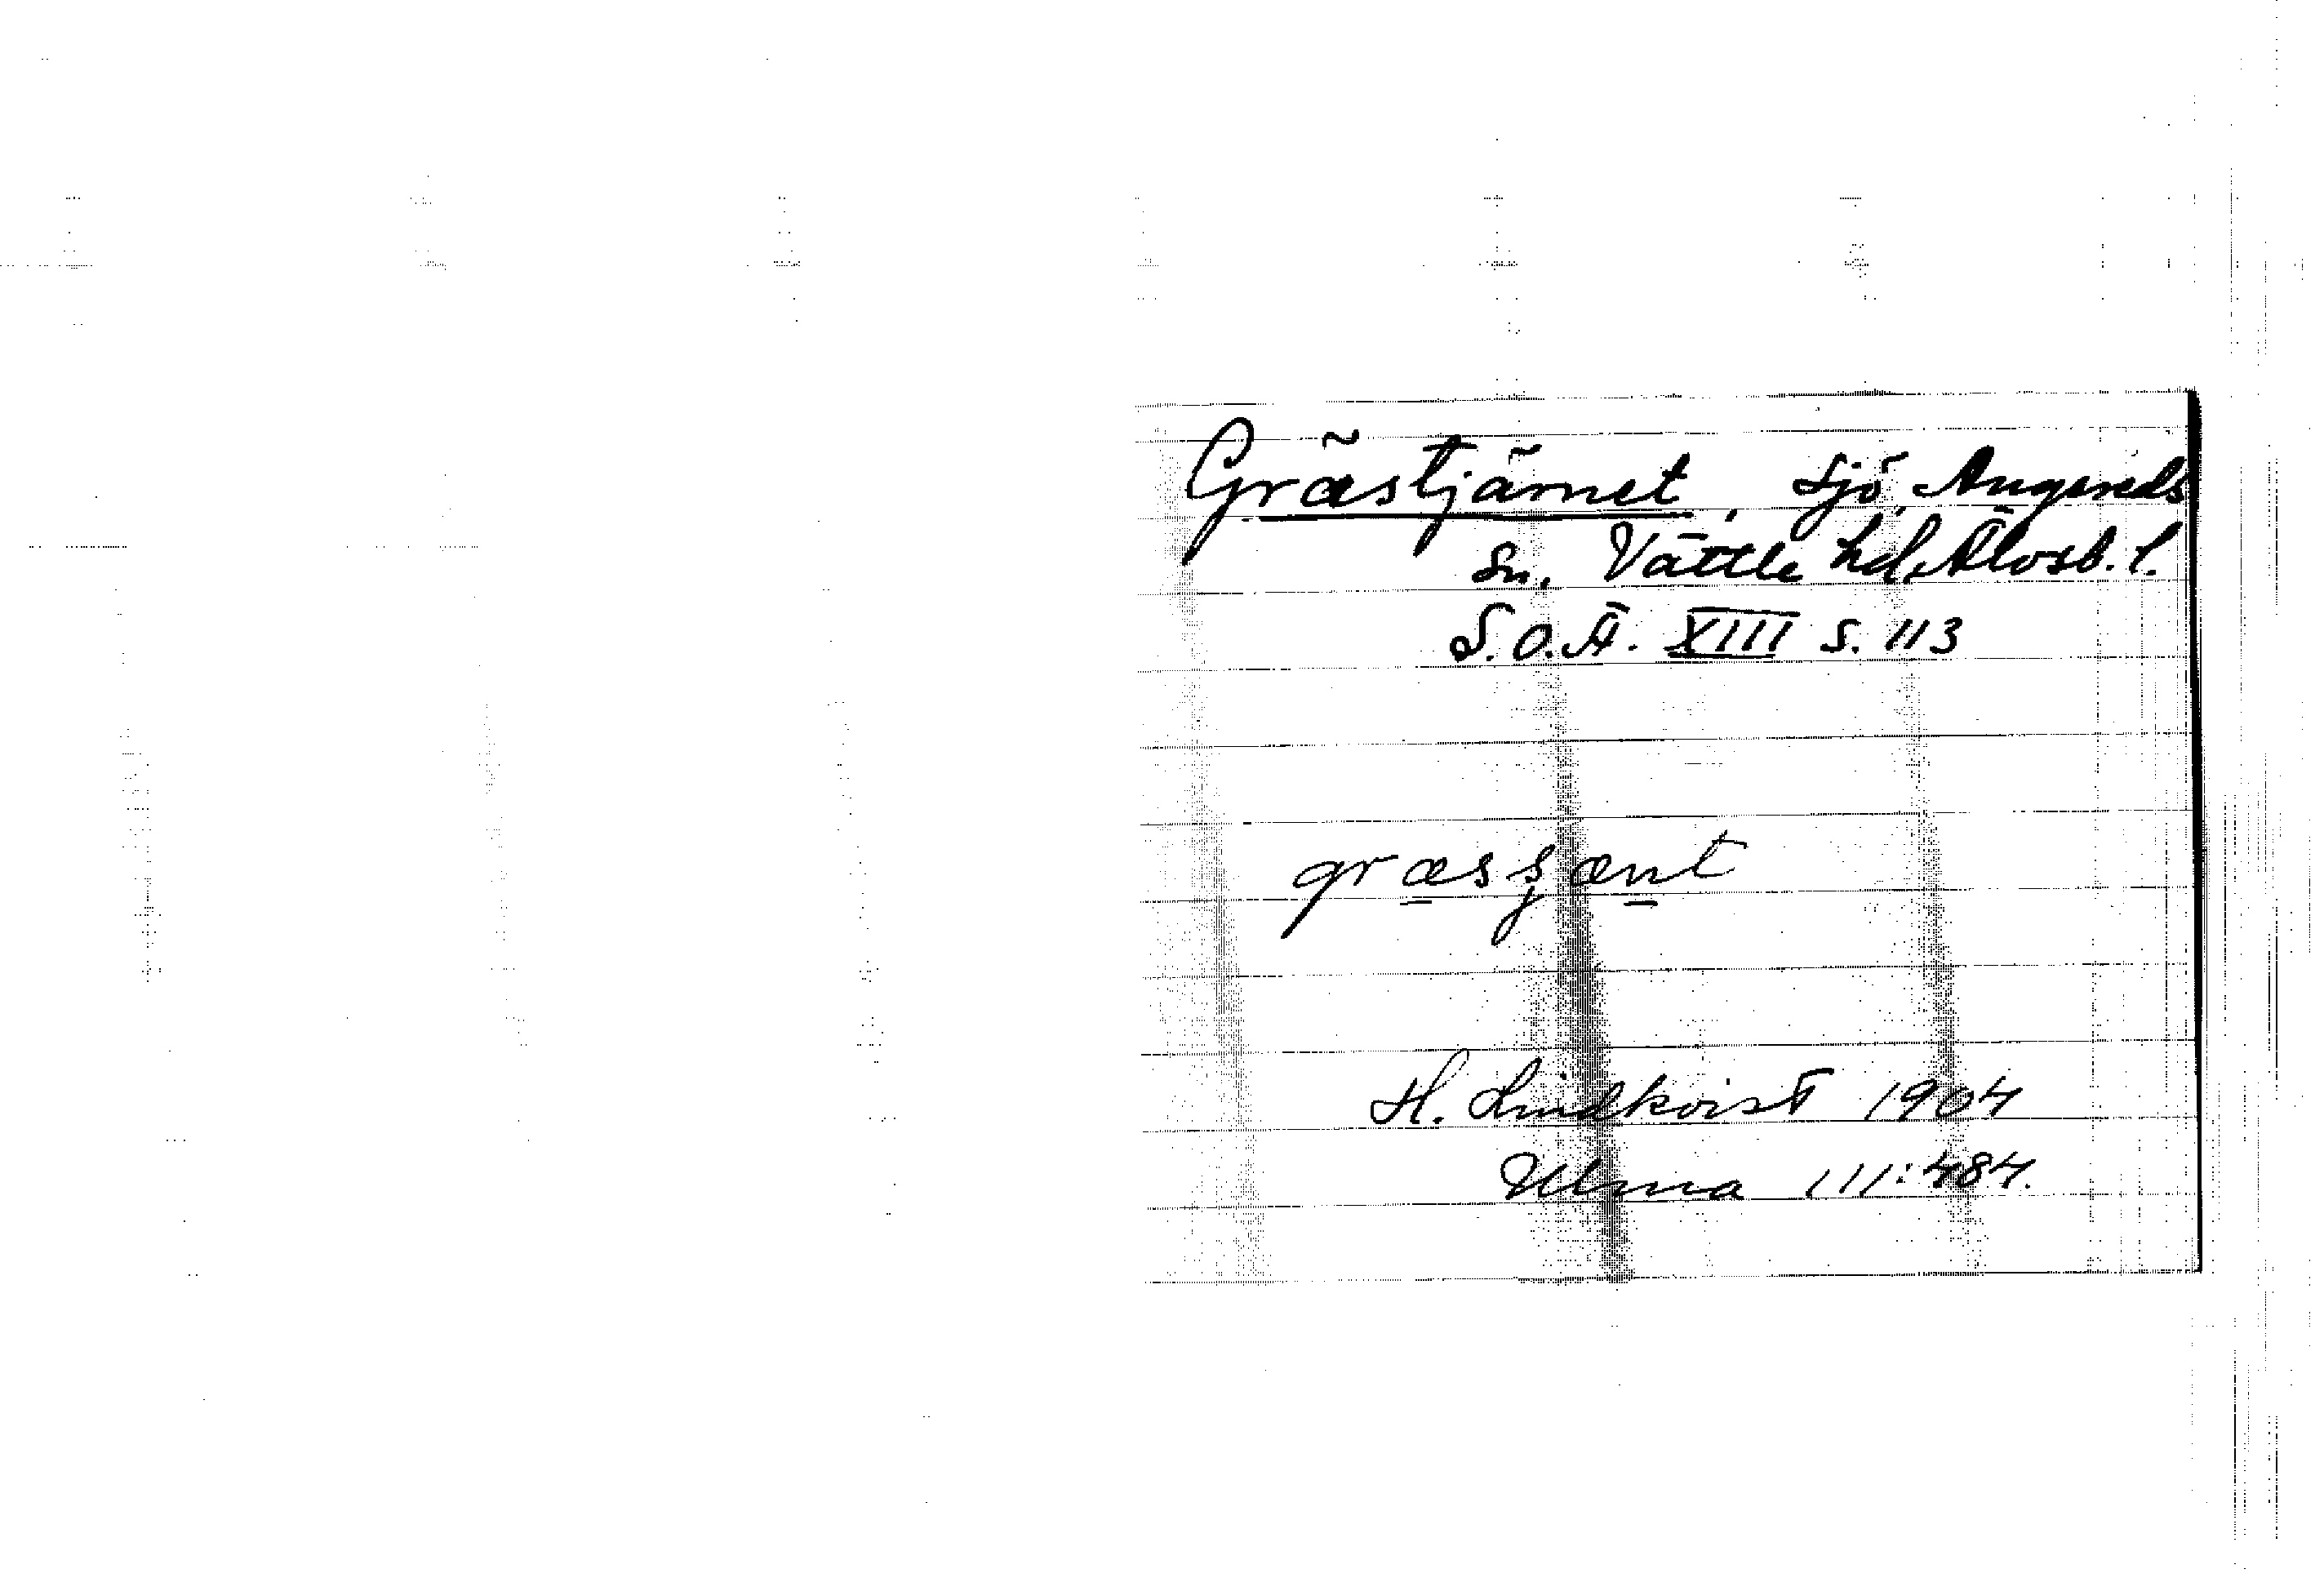 Grästjärnet, sjö, Angereds
sn, Vättle hd, Älvsb. l.
S.O.Ä. XIII s. 113
H. Lindkvist 1904
Ulma 111:484.